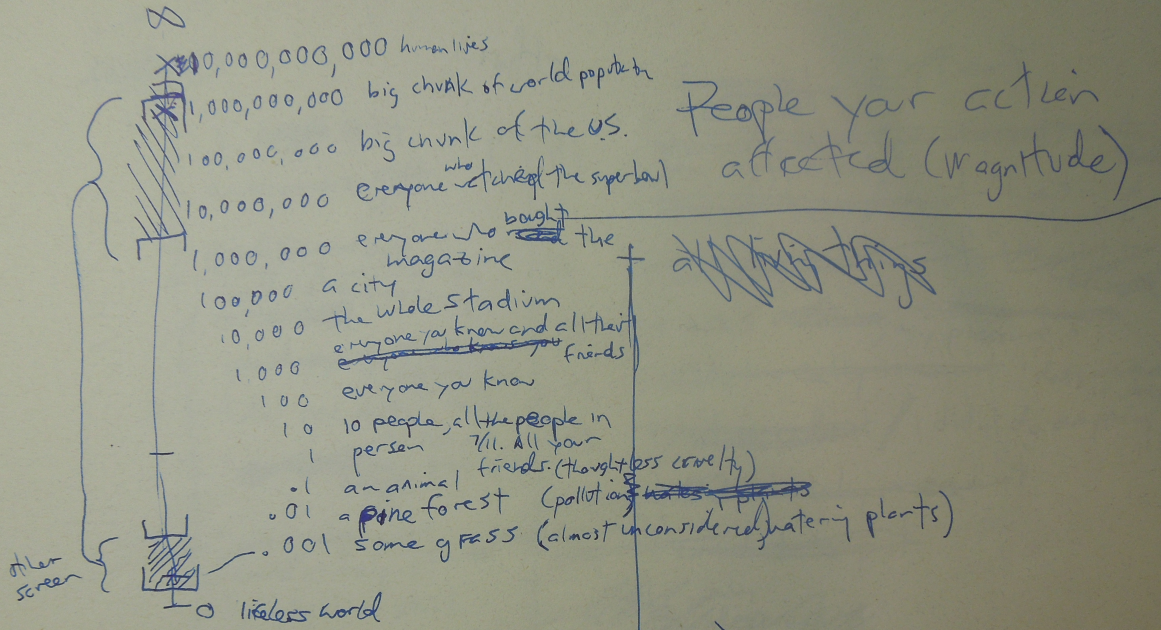 ∞
10,000,000,000 human lives
1,000,000,000 big chunk of world population
100,000,000 big chunk of the U.S.
10,000,000 everyone who watched the superbowl
1,000,000 everyone who bought the
magazine
100,000 a city
10,000 the whole stadium
1000 everyone you know and all their
friends
100 everyone you know
10 10 people, all the people in
7/11. All your
friends.
1 person
.1 an animal (thoughtless cruelty)
.01 a pine forest (pollution)
.001 some grass (almost unconsidered, watering plants)
0 lifeless world
other
screen
People your action
affected (Magnitude)
all living things